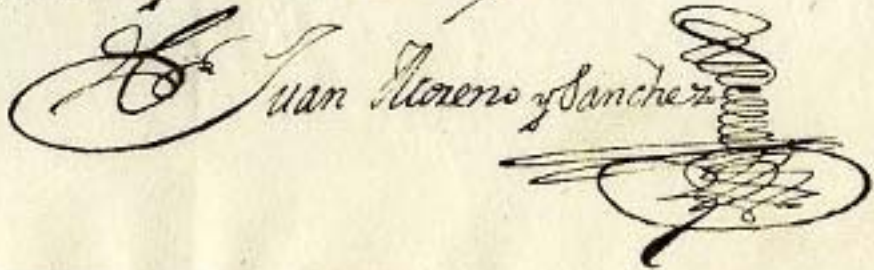 Juan Moreno y Sanchez